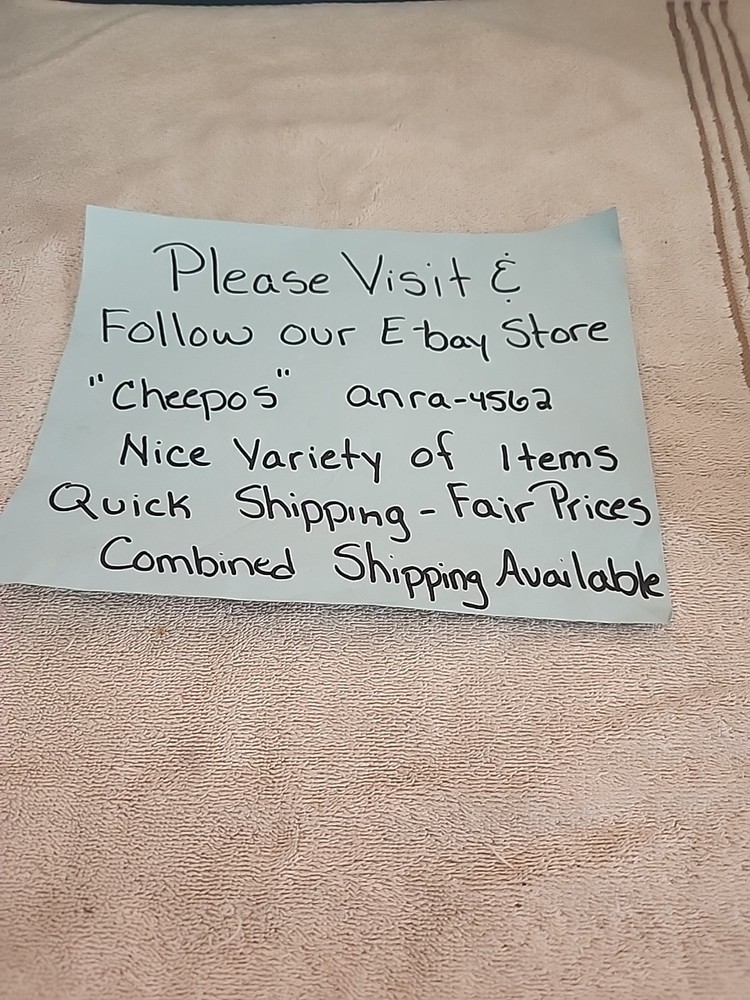 Please Visit &
Follow our E-bay Store
"Cheepos" anra-4562
Nice Variety of Items
Quick Shipping - Fair Prices
Combined Shipping Available